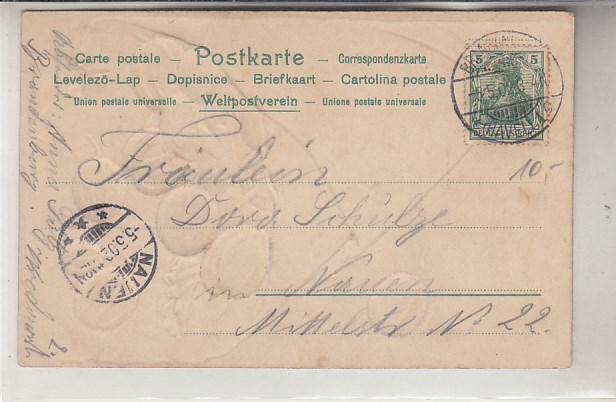 Carte postale – Postkarte – Correspondenzkarte
Levelező-Lap – Dopisnice – Briefkaart – Cartolina postale
Union postale universelle – Weltpostverein – Unione postale universale
5 5
10,-
Fräulein
Dora Schulze
in Nauen
Mittelstr No 22.
NAUEN
Anna
Brandenburg